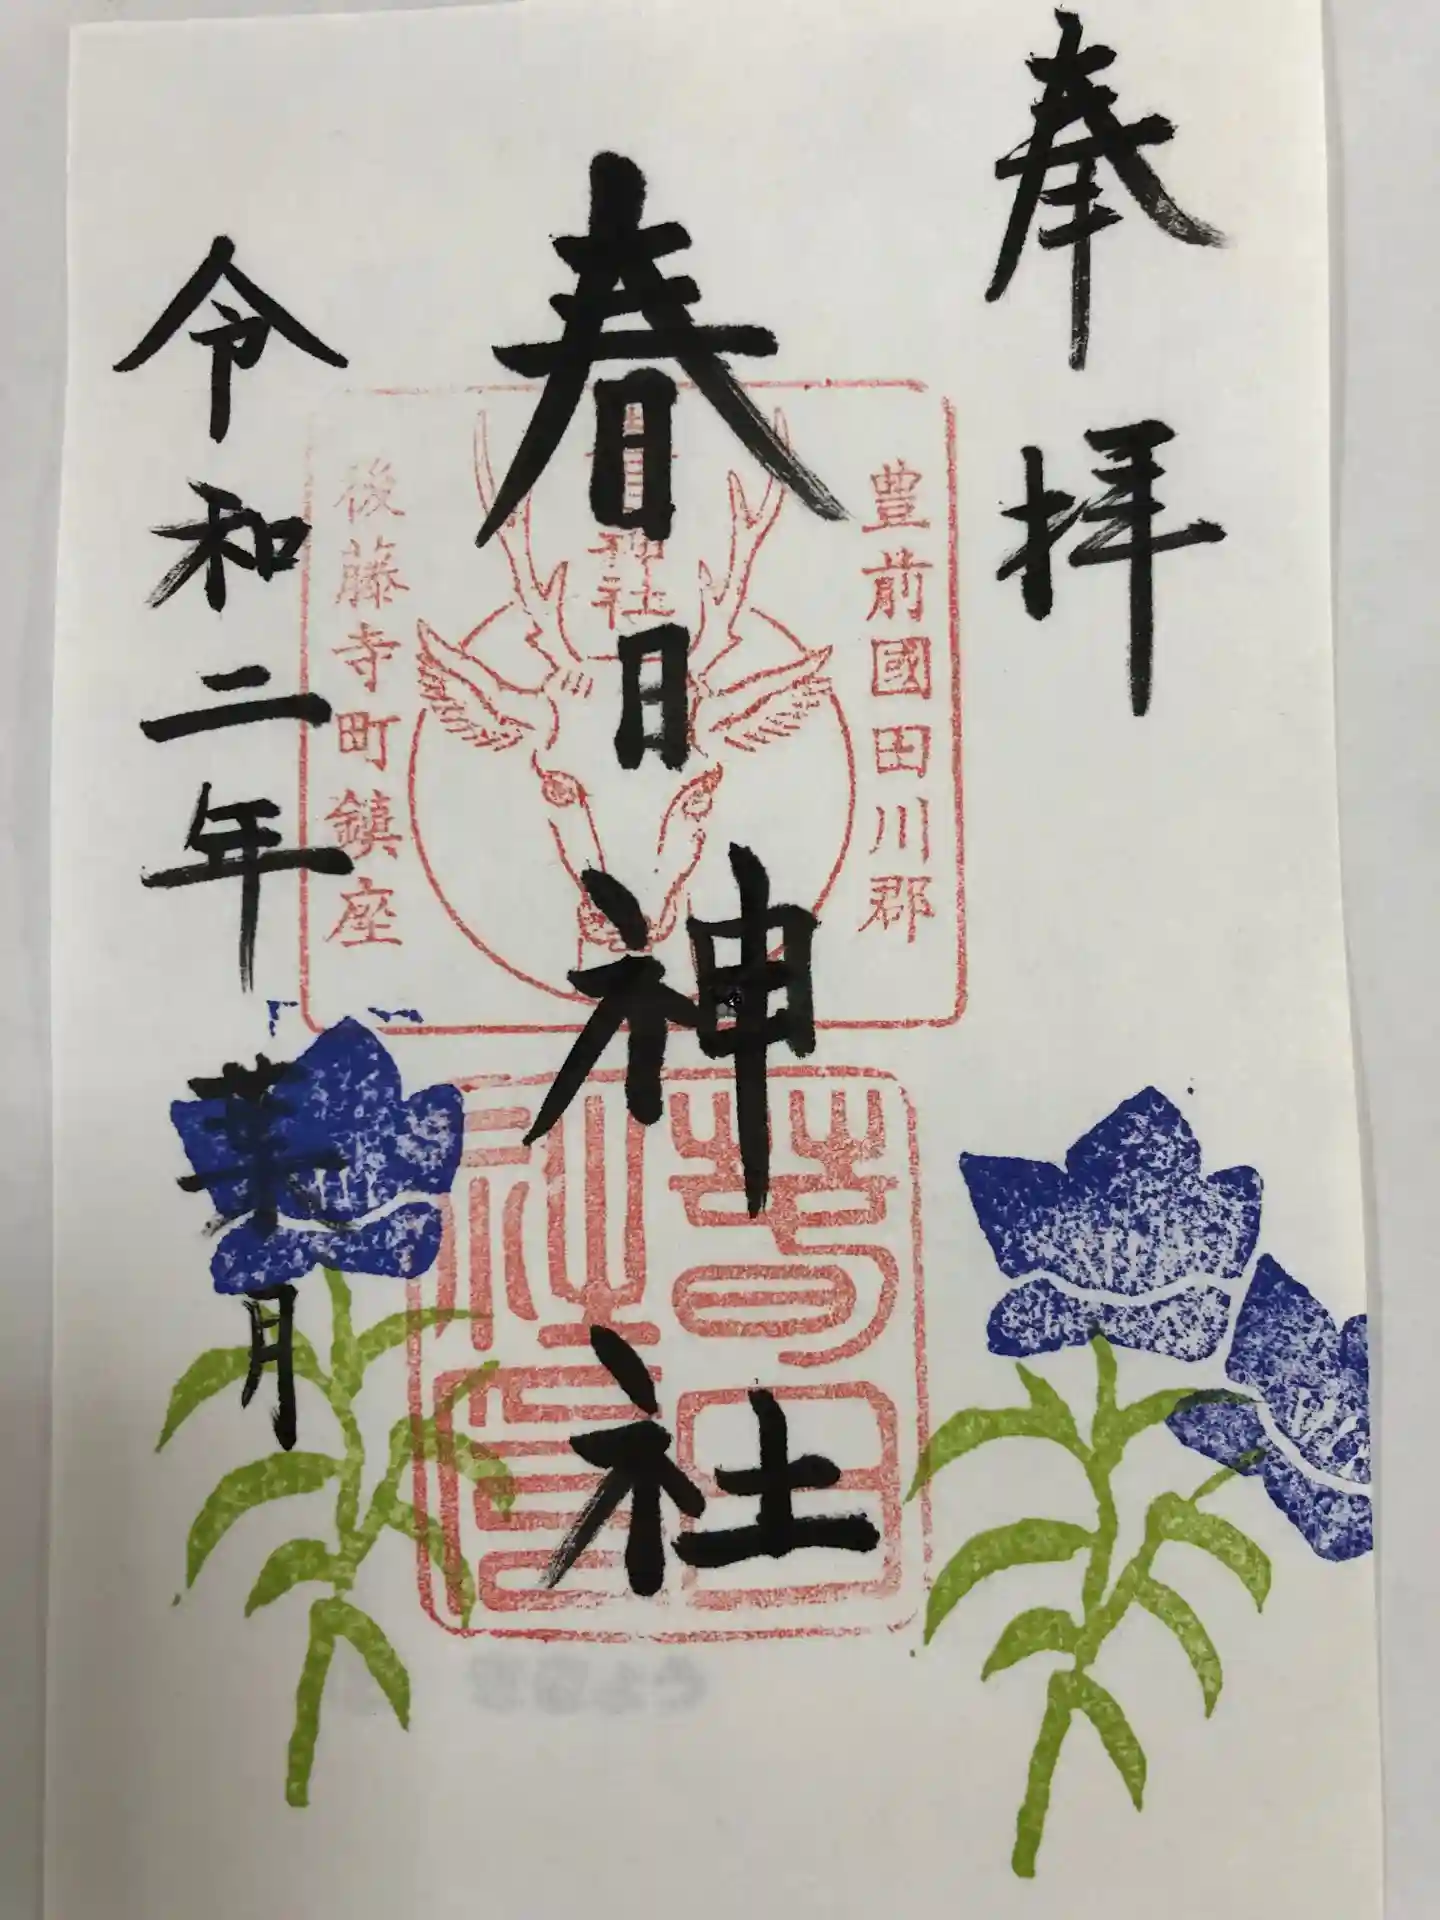 奉拝
豊前國田川郡
春日神社
春日神社
春日社印
後藤寺町鎮座
令和二年葉月